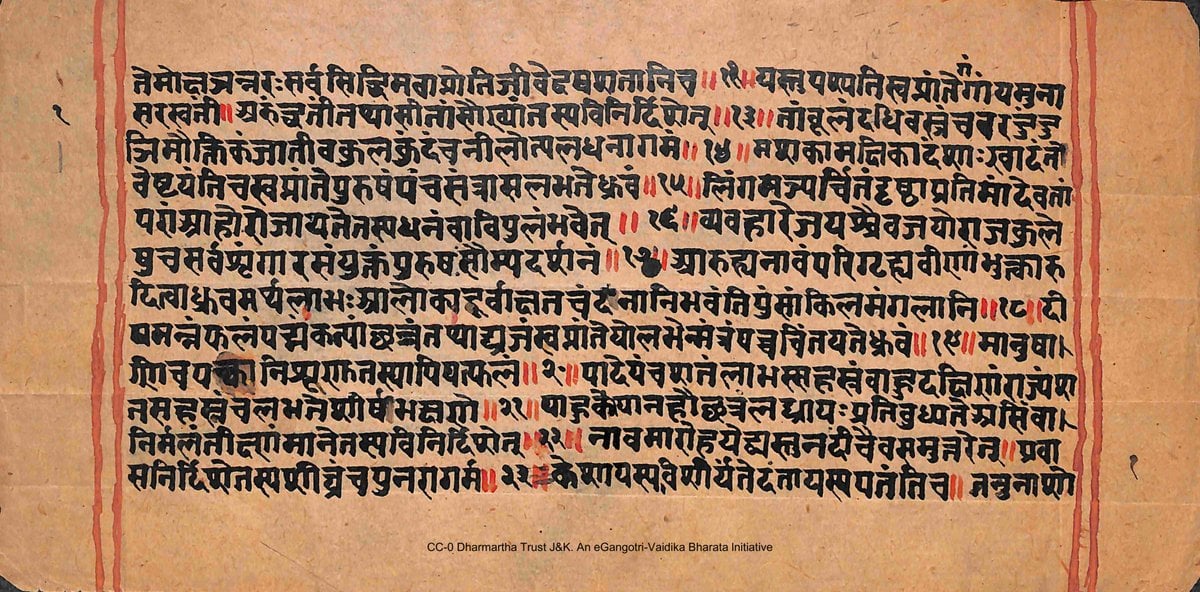 सर्वसिद्धिमवाप्नोतिजीवेद्वषशतानिच॥१२॥यस्तुपश्यतिस्वप्नांतेगंगांयमुना
सरस्वती॥अरुंधतीतथासीतांसौख्यांतस्यविनिर्दिशेत्॥१३॥तांबूलंदधिवस्त्रंच
मौक्तिकंजातीवकुलकुंदंचनीलोत्पलधनागमं॥१४॥
वेष्टयंतिचस्वप्नांतेपुरुषंपंचसंत्रासलभतेध्रुवं॥१५॥लिंगमभ्यर्चितंदृष्ठाप्रतिमांदेवतां
जायतेतस्यधनंवाविपुलंभवेत्॥१६॥व्यवहारेजयश्चैवजयोराजकुले
षुचसर्वशृंगारसंयुक्तंपुरुषंसौम्यदर्शनं॥१७॥आरुह्यनावंपरिगृह्यवीणांभुक्तारु
नानिभवंतिपुंसांकिलमंगलानि॥१८॥दी
पमन्नंफलंपद्मकन्यांछत्रंतथाध्वजंस्वप्नांतेयोलभेन्मत्रंपच्चचिंतयतेध्रुवं॥१९॥मानुषा।
णिचपक्कानिशृणुतस्यापियत्फलं॥२०॥पादेपंचशतंलाभस्सहस्त्रंवाहुदक्षिणांराज्यंश
तसहस्त्रंचलभतेशीर्षभक्षणो॥२१॥पादुकेपानहौछत्रंलध्वायःप्रतिवुध्यतेअसिंवा।
निर्मलंतीक्ष्णंमानेतस्यविनिर्दिशेत्॥२२॥नावमारोहयेद्यस्तुनदींचैवसमुत्तरेत्॥प्रवा
सनिर्दिशेतस्यशीघ्रंचपुनरागमं॥२३॥केशायस्यविशीर्यतेदंतायस्यपतंतिच॥
१
१
CC-0 Dharmartha Trust J&K. An eGangotri-Vaidika Bharata Initiative